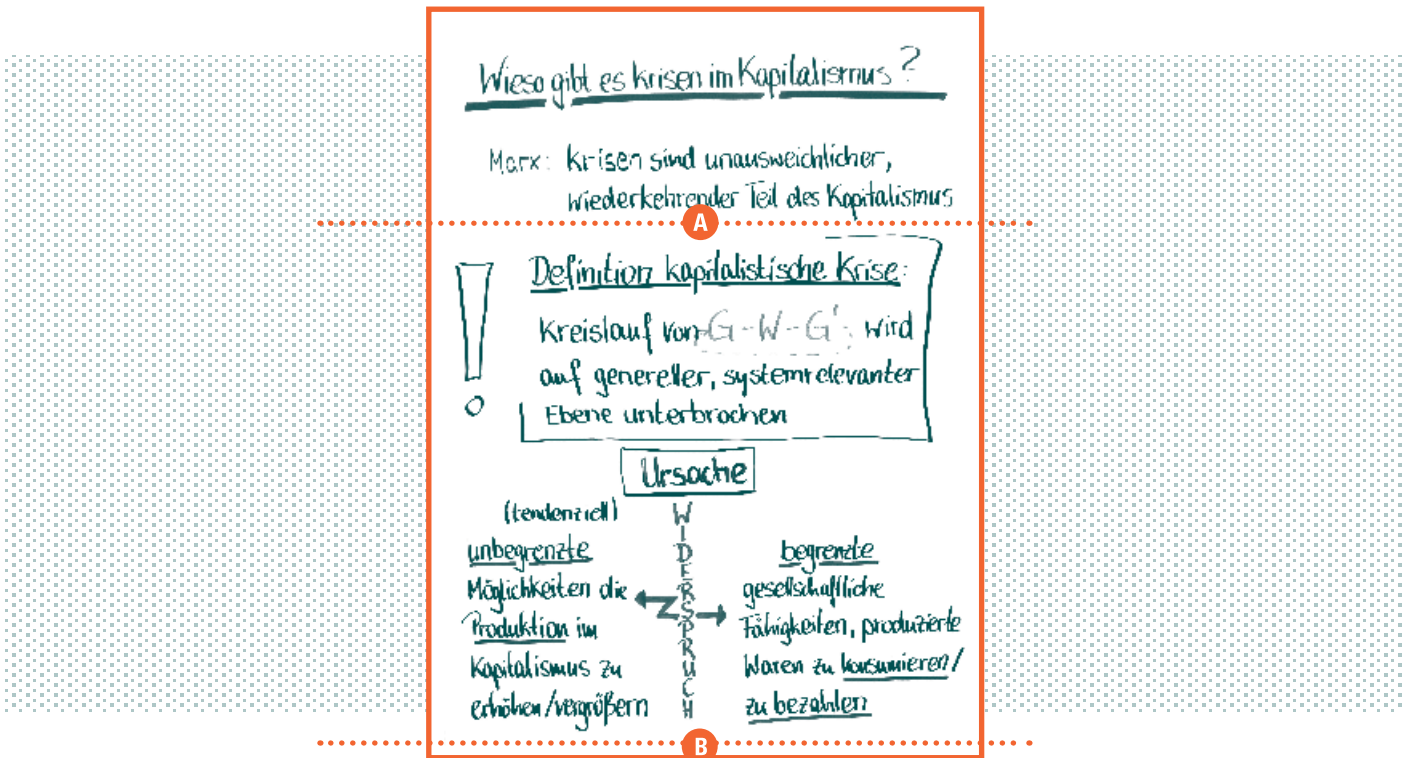 Wieso gibt es Krisen im Kapitalismus?
Marx: Krisen sind unausweichlicher,
wiederkehrender Teil des Kapitalismus
A
Definition kapitalistische Krise:
!
Kreislauf von G-W-G' wird
auf genereller, systemrelevanter
Ebene unterbrochen
Ursache
(tendenziell)
unbegrenzte
Möglichkeiten die
Produktion im
Kapitalismus zu
erhöhen/vergrößern
WIDERSPRUCH
begrenzte
gesellschaftliche
Fähigkeiten, produzierte
Waren zu konsumieren/
zu bezahlen
B